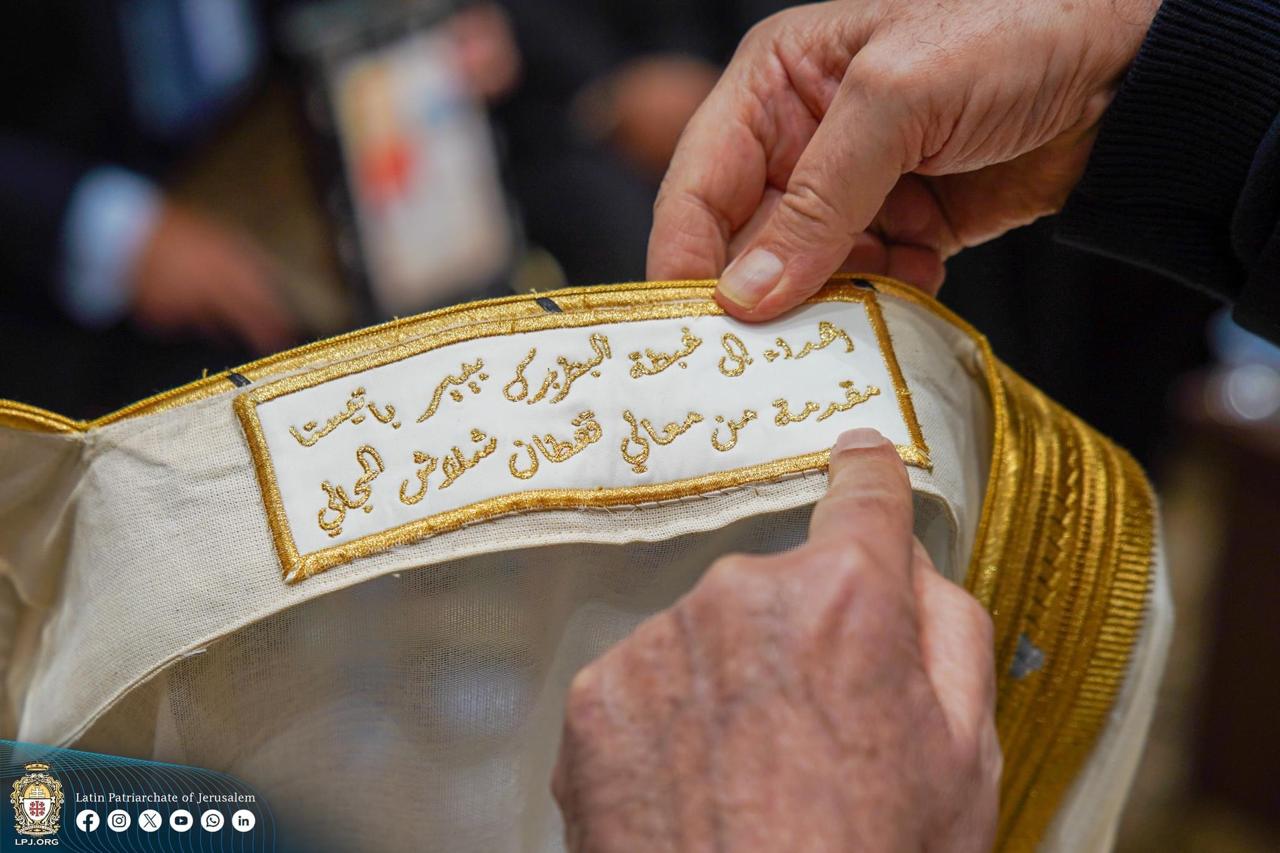 اهداء إلى غبطة البطريرك بييير باتيستا
مقدمة من معالي قفطان شلاش المجالي
Latin Patriarchate of Jerusalem
LPJ.ORG